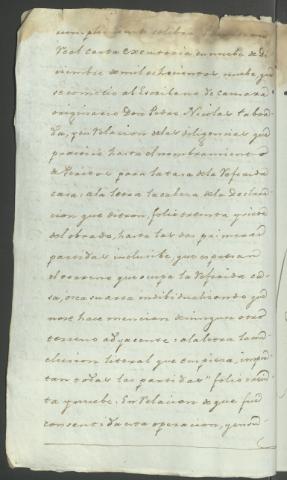 cumplimiento
Real carta executoria en nueve de Di-
ciembre de mil ochocientos nueve, que
se cometio al Escribano de Camara
originario Don Pedro Nicolas Taboa-
da, en relacion de las diligencias que
hasta el nombramiento
de Peritos para la tasa de la referida
casa; a la letra la cabeza de la Declara-
cion que dieron, folio treinta y nueve
de lo obrado, hasta las dos primeras
partidas inclusibe, que expresan
el terreno que ocupa la referida ca-
sa, individualizando que
no se hace mencion de ninguno otro
terreno adyacente: a la letra la con-
clusion literal que empieza, impor-
tan todas las partidas folio
ta y nuebe: En relacion de que fue
consentida esta operacion, y